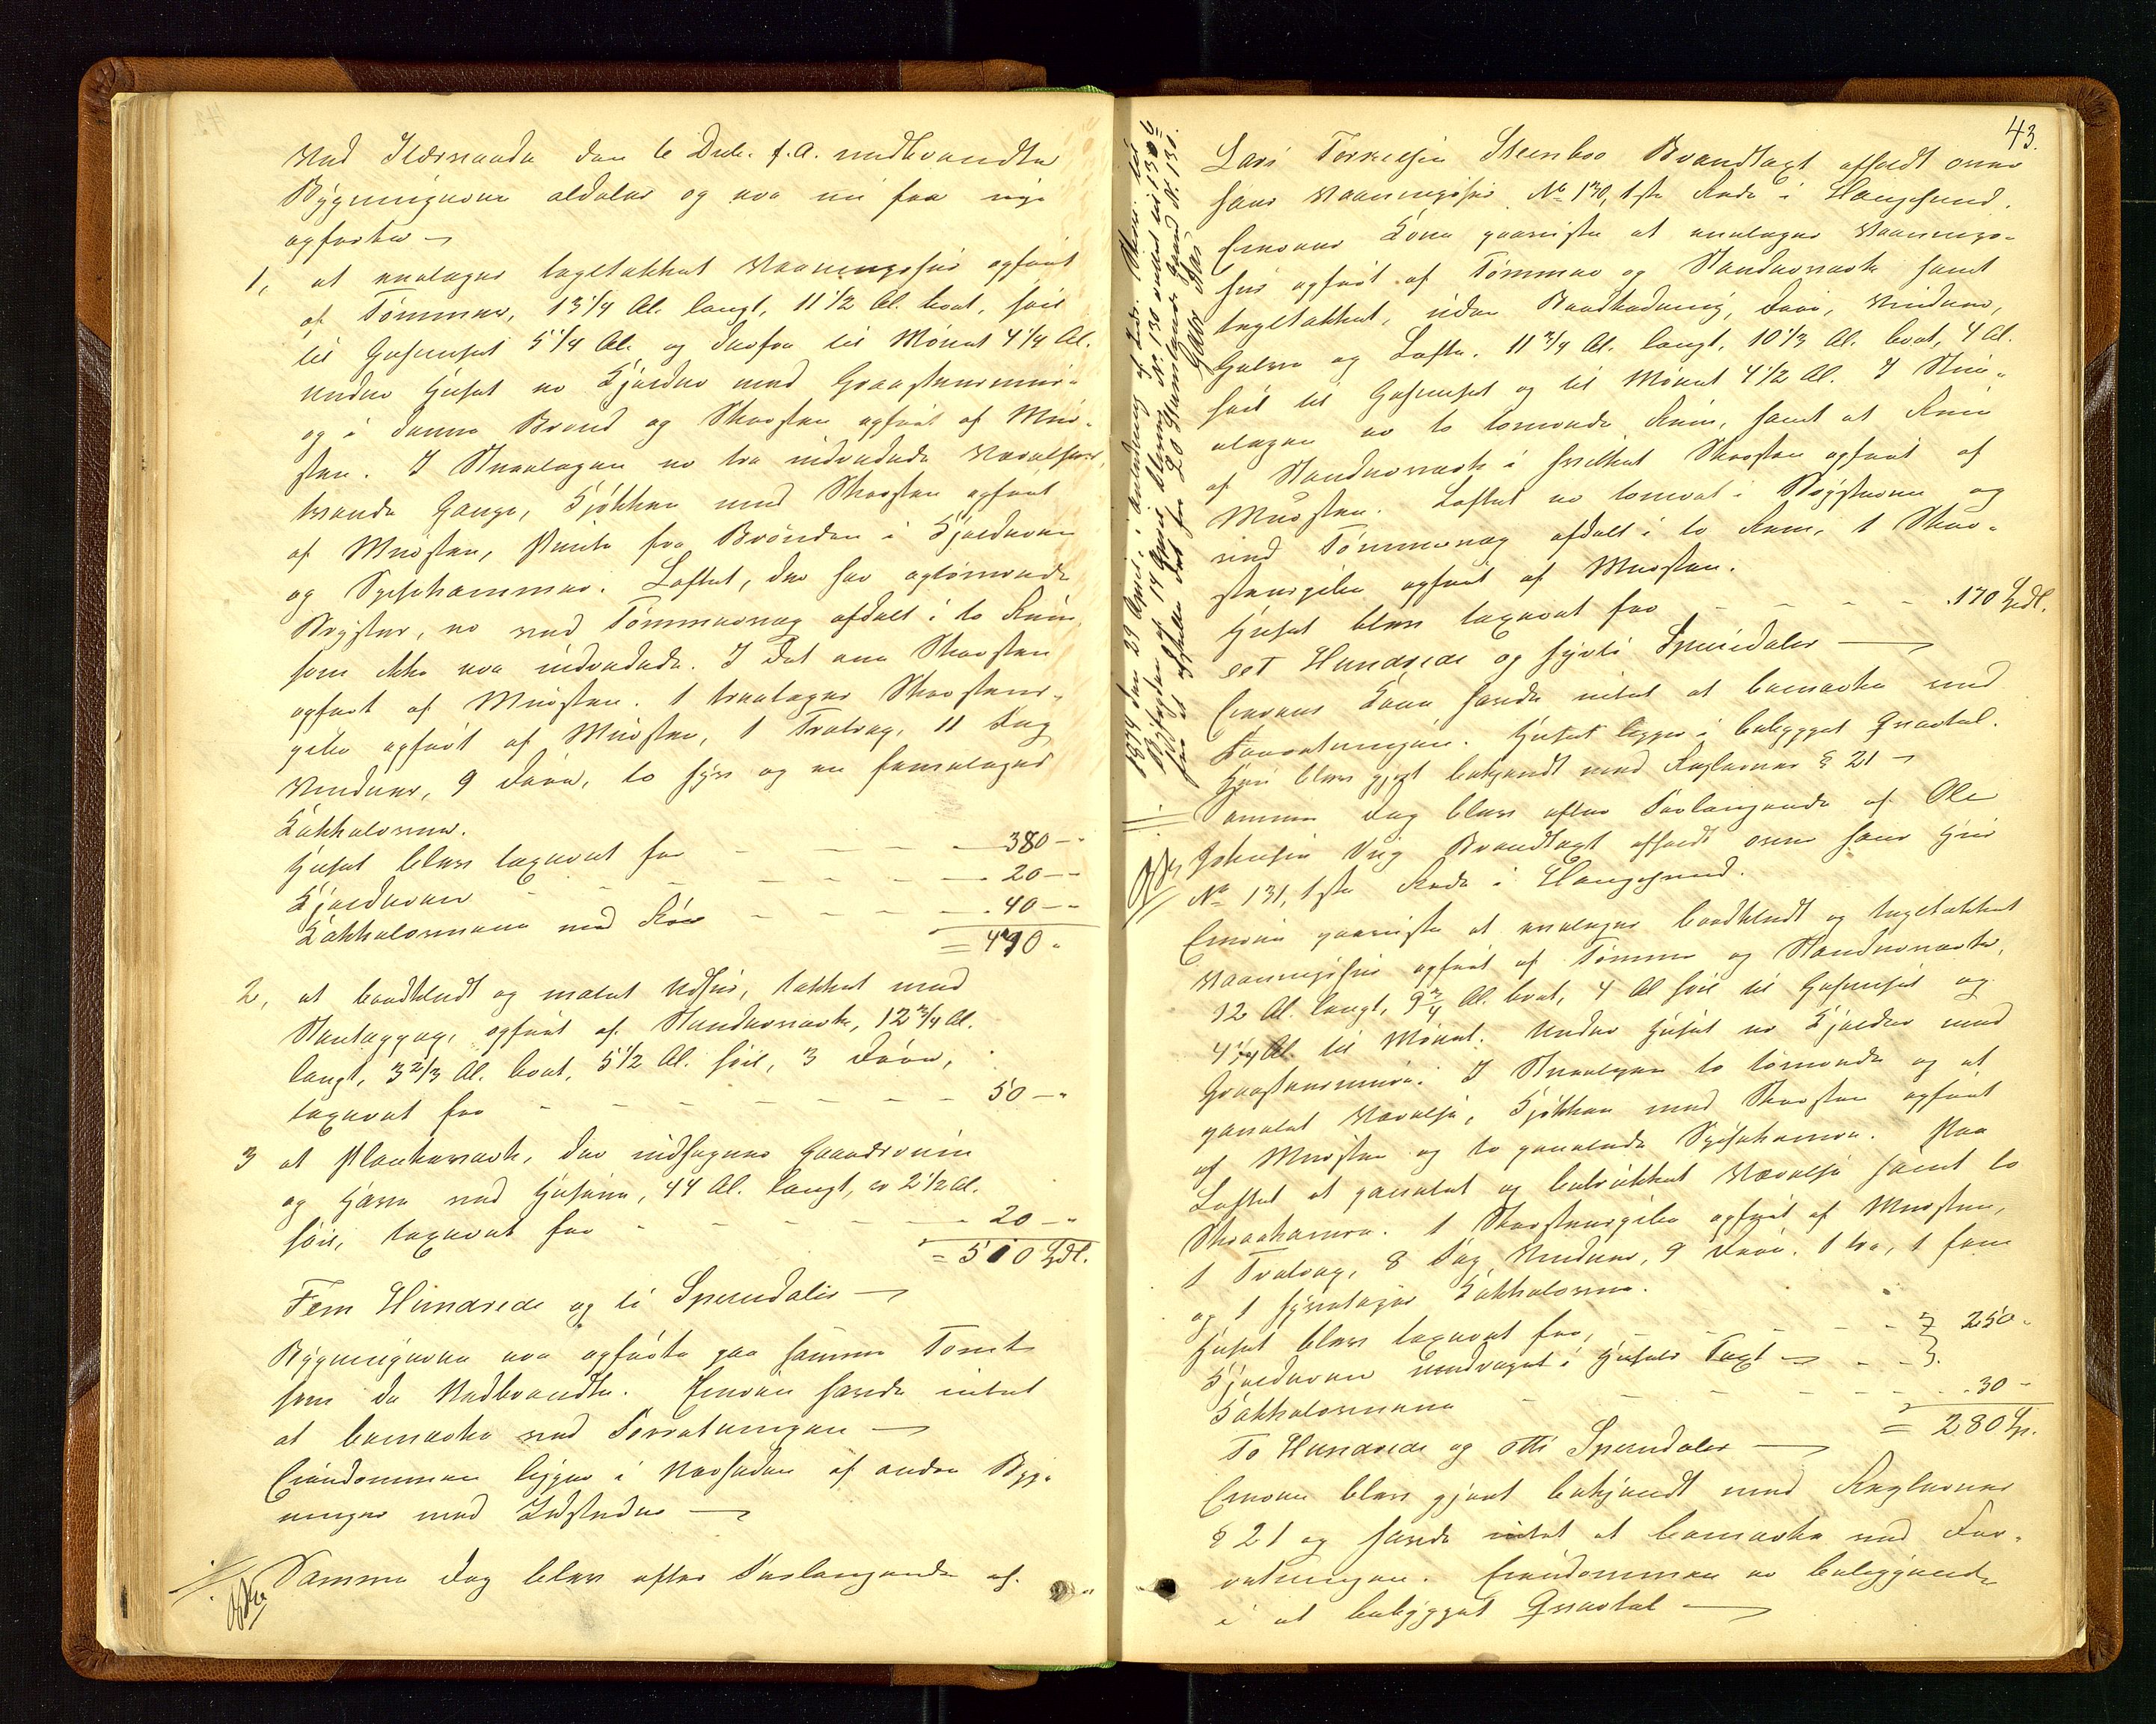 Ved Ildsvaade den 6 Decb. f. A. nedbrændte
Bygningerne aldeles og ere nu faa nye
opførte —
1, et enetages tegltækket Vaaningshus opført
af Tømmer, 13 1/4 Al. langt, 11 1/2 Al. bredt, høit
til Gesimset 5 1/4 Al. og derfra til Mønet 4 1/4 Al.
Under Huset er Kjelder med Graastensmur
og i denne Brønd og Skorsten opført af Mur-
sten. I Stueetagen er tre indredede Værelser,
tvende Gange, Kjøkken med Skorsten opført
af Mursten, fra Brønden i Kjelderen
og Spisekammer. Loftet, der har optømrede
Bryster, er ved Tømmervæg afdelt i to Rum,
som ikke ere indredede. I det ene Skorsten
opført af Mursten. 1 treetages Skorstens-
pibe opført af Mursten, 1 Tratrap, 11 Fag
Vinduer, 9 Døre, to fyr og en femetages
Kakkelovne.
Huset blev taxeret for — 380 —
Kjelderen — 20 —
Kakkelovnene med Rør — 40 —
= 440 "
2, et bordklædt og malet Udhus, tækket med
opført af Standerværk, 12 3/4 Al.
langt, 3 2/3 Al. bredt, 5 1/2 Al. høit, 3 Døre,
taxeret for — 50 —
3 et Plankeværk, der indhegner Gaardsrum
og Have ved Husene, 44 Al. langt, er 2 1/2 Al.
høit, taxeret for — 20 —
= 510 Spdl.
Fem Hundrede og ti Speciedaler —
Bygningerne ere opførte paa samme Tomt
som de Nedbrændte. Eieren havde intet
at bemærke ved Forretningen —
Eiendommen ligger i Nærheden af andre Byg-
ninger med Ildsteder —
Samme Dag blev efter Forlangende af
43.
Lars Torkelsen Steensbø Brandtaxt afholdt over
hans Vaaningshus No 130, 1ste Rode i Haugesund.
Eierens Kone paaviste et enetages Vaanings-
hus opført af Tømmer og Standerværk samt
tegltækket, uden Bordklædning, Døre, Vinduer,
Gulve og Lofte. 11 3/4 Al. langt, 10 1/3 Al. bredt, 4 Al.
høit til Gesimset og til Mønet 4 1/2 Al. I Stue-
etagen er to tømrede Rum, samt et Rum
af Standerværk i hvilket Skorsten opført af
Mursten. Loftet er tømret i Brysterne og
ved Tømmervæg afdelt i to Rum, 1 Skor-
stenspibe opført af Mursten.
Huset blev taxeret for — 170 Spdl.
eet Hundrede og sytti Speciedaler —
Eierens Kone havde intet at bemærke ved
Forretningen. Huset ligger i bebygget Qvartal.
Hun blev gjort bekjendt med Reglernes § 21 —
Samme Dag blev efter Forlangende af Ole
Johnsen Vig Brandtaxt afholdt over hans Hus
No 131, 1ste Rode i Haugesund.
Eieren paaviste et enetages bordklædt og tegltækket
Vaaningshus opført af Tømmer og Standerværk,
12 Al. langt, 9 3/4 Al. bredt, 4 Al høit til Gesimset og
4 1/4 Al. til Mønet. Under Huset er Kjelder med
Graastensmure. I Stueetagen to tømrede og et
panelet Værelse, Kjøkken med Skorsten opført
af Mursten og to panelede Spisekamre. Paa
Loftet et panelet og betrukket Værelse samt to
Skraakamre. 1 Skorstenspibe opført af Mursten,
1 Tratrap, 8 Fag Vinduer, 9 Døre. 1 tre, 1 fem
og 1 fyretages Kakkelovne.
Huset blev taxeret for, — 250 "
Kjelderen medregnet i Husets Taxt —
Kakkelovnene — 30 —
= 280 Sp.
To Hundrede og otti Speciedaler —
Eieren blev gjort bekjendt med Reglernes
§ 21 og havde intet at bemærke ved For-
retningen. Eiendommen er beliggende
i et bebygget Qvartal —
1874 den 29 April, i Anledning af
No. 130 No. 130 b
No. 131.